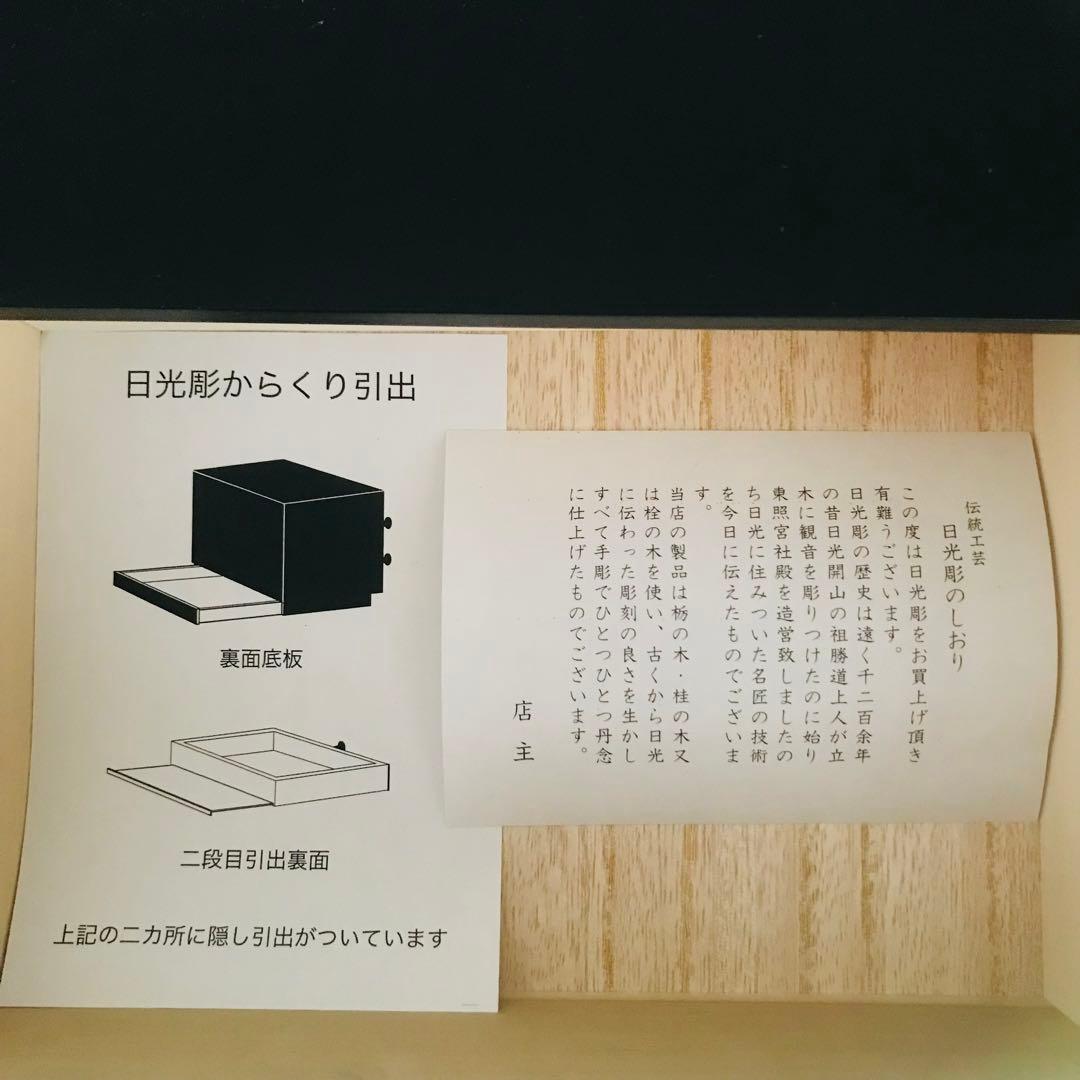 日光彫からくり引出
裏面底板
二段目引出裏面
上記の二カ所に隠し引出がついています
伝統工芸
日光彫のしおり
この度は日光彫をお買上げ頂き
有難うございます。
日光彫の歴史は遠く千二百余年
の昔日光開山の祖勝道上人が立
木に観音を彫りつけたのに始り
東照宮社殿を造営致しましたの
ち日光に住みついた名匠の技術
を今日に伝えたものでございま
す。
当店の製品は栃の木・桂の木又
は栓の木を使い、古くから日光
に伝わった彫刻の良さを生かし
すべて手彫でひとつひとつ丹念
に仕上げたものでございます。
店主